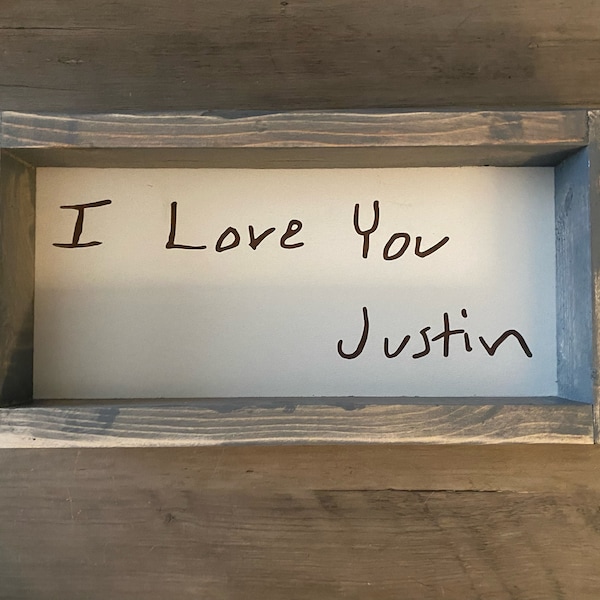 I Love You
Justin